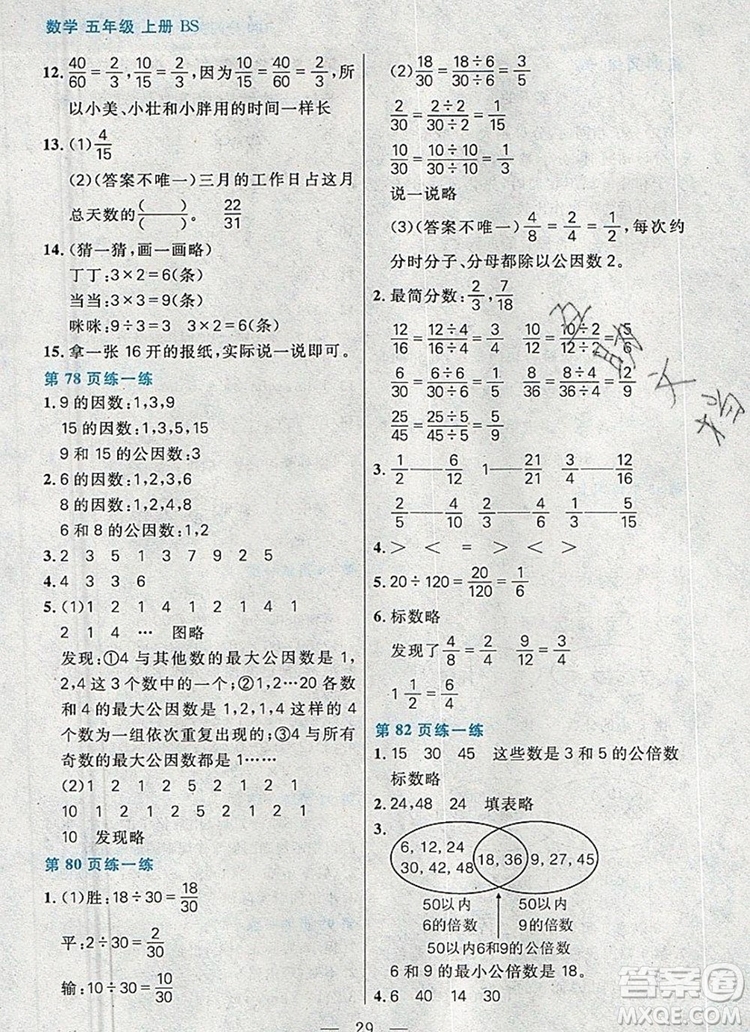 数学 五年级 上册 BS
12. 40/60=2/3, 10/15=2/3, 因为40/60=10/15=2/3, 所
以小美、小壮和小胖用的时间一样长
13. (1) 4/15
(2)(答案不唯一)三月的工作日占这月
总天数的( )/( )。 22/31
14. (猜一猜,画一画略)
丁丁:3×2=6(条)
当当:3×2=6(条)
咪咪:9÷3=3 3×2=6(条)
15. 拿一张 16 开的报纸,实际说一说即可。
第 78 页练一练
1. 9 的因数:1,3,9
15 的因数:1,3,5,15
9 和 15 的公因数:1,3
2. 6 的因数:1,2,3,6
8 的因数:1,2,4,8
6 和 8 的公因数:1,2
3. 2 3 5 1 3 7 9 2 5
4. 4 3 3 6
5. (1) 1 2 1 4 1 2 1 4 1
2 1 4 … 图略
发现:①4 与其他数的最大公因数是 1,
2,4 这 3 个数中的一个;②1,2,3…20 各数
与 4 的最大公因数是 1,2,1,4 这样的 4
个数为一组依次重复出现的;③4 与所有
奇数的最大公因数都是 1……
(2) 1 2 1 2 5 2 1 2 1
10 1 2 1 2 5 2 1 2 1
10 发现略
第 80 页练一练
1. (1)胜:18÷30=18/30
平:2÷30=2/30
输:10÷30=10/30
(2) 18/30=18÷6/30÷6=3/5
2/30=2÷2/30÷2=1/15
10/30=10÷10/30÷10=1/3
说一说略
(3)(答案不唯一) 4/8=2/4=1/2, 每次约
分时分子、分母都除以公因数 2。
2. 最简分数: 2/3, 7/18
12/16=12÷4/16÷4=3/4 10/12=10÷2/12÷2=5/6
6/36=6÷6/36÷6=1/6 8/36=8÷4/36÷4=2/9
25/45=25÷5/45÷5=5/9
3. 1/2——6/12 1——21/21 3/4——12/16
2/5——4/10 5/4——10/8 2/6——1/3
4. > < < = > <
5. 20÷120=20/120=1/6
6. 标数略
发现了 4/8=2/4 1/2=6/12 9/12=3/4
1 1/2=6/4
第 82 页练一练
1. 15 30 45 这些数是 3 和 5 的公倍数
标数略
2. 24,48 24 填表略
3.
6, 12, 24
30, 42, 48
18, 36
9, 27, 45
50以内
6的倍数
50以内
9的倍数
50以内6和9的公倍数
6 和 9 的最小公倍数是 18。
4. 6 40 14 30
— 29 —
答案圈
MXQE.COM